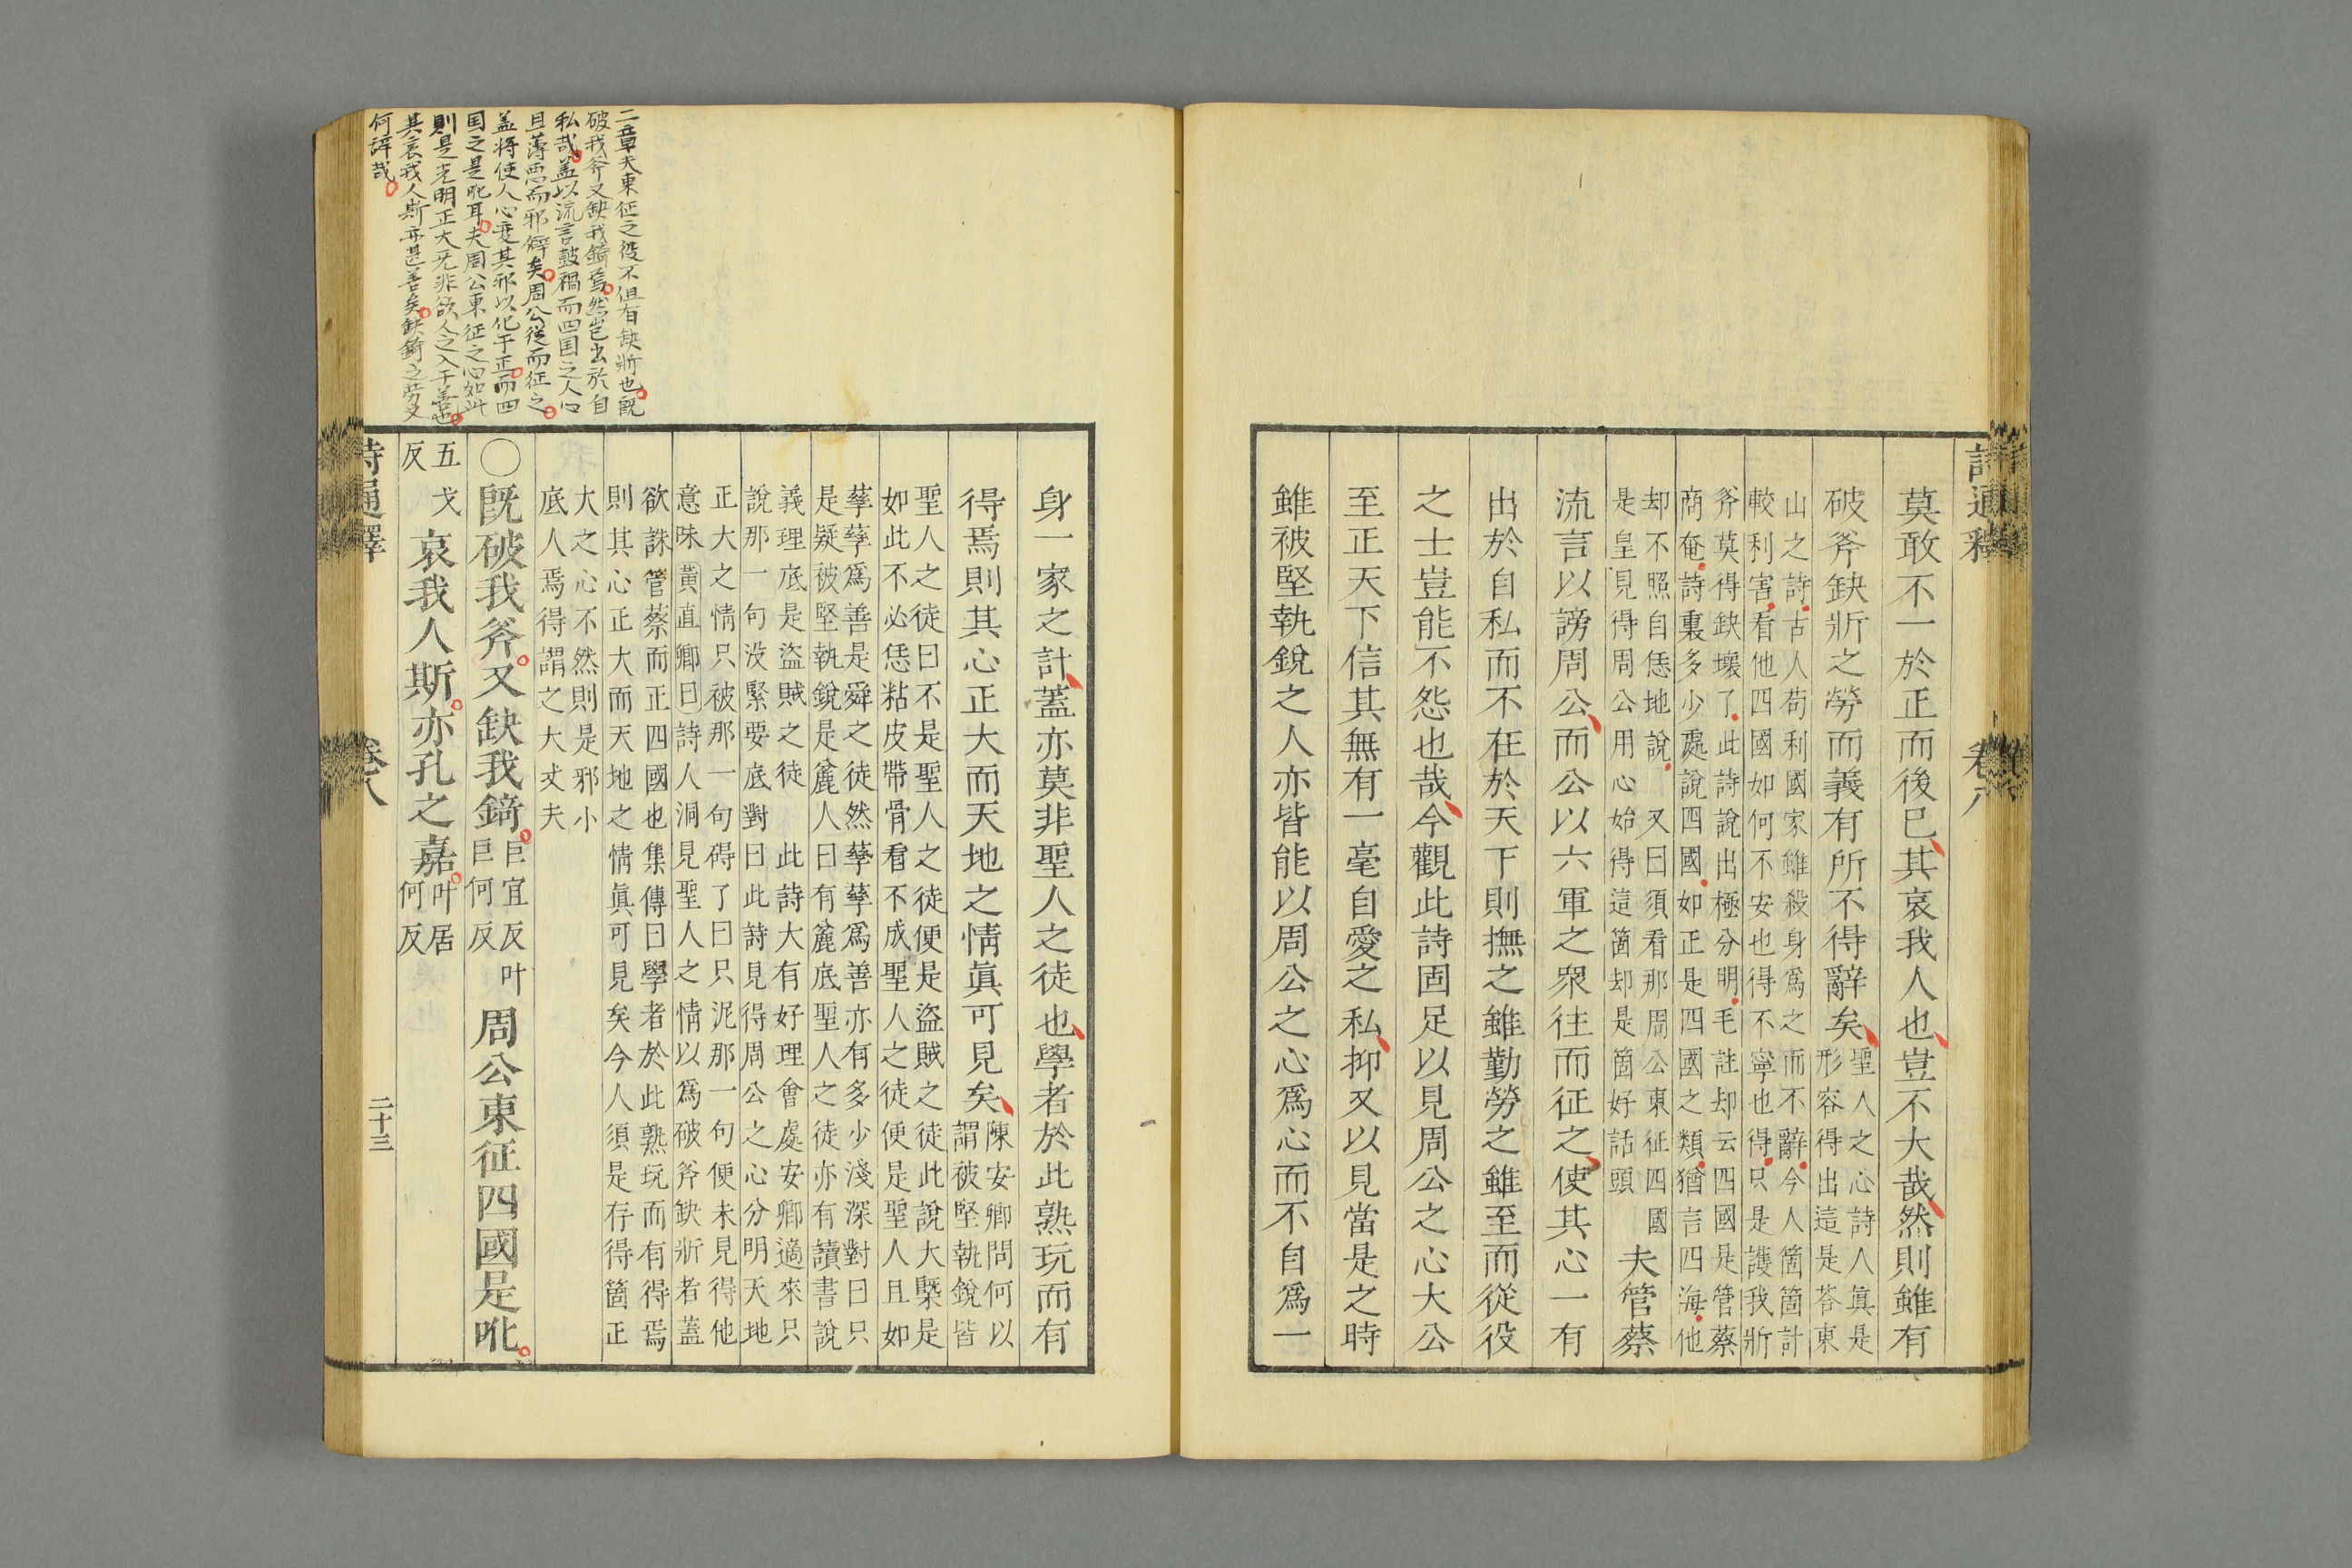 詩通釋 卷八
莫敢不一於正而後已其哀我人也豈不大哉然則雖有
破斧缺斨之勞而義有所不得辭矣
聖人之心詩人眞是
形容得出這是荅東
山之詩古人苟利國家雖殺身爲之而不辭今人箇箇計
較利害看他四國如何不安也得不寧也得只是護我斨
斧莫得缺壞了此詩說出極分明毛註却云四國是管蔡
商奄詩裏多少處說四國如正是四國之類猶言四海他
却不照自恁地說 又曰須看那周公東征四國
是皇見得周公用心始得這箇却是箇好話頭
夫管蔡
流言以謗周公而公以六軍之衆往而征之使其心一有
出於自私而不在於天下則撫之雖勤勞之雖至而從役
之士豈能不怨也哉今觀此詩固足以見周公之心大公
至正天下信其無有一毫自愛之私抑又以見當是之時
雖被堅執銳之人亦皆能以周公之心爲心而不自爲一
身一家之計蓋亦莫非聖人之徒也學者於此熟玩而有
得焉則其心正大而天地之情眞可見矣
陳安卿問何以
謂被堅執銳皆
聖人之徒曰不是聖人之徒便是盜賊之徒此說大槩是
如此不必恁粘皮帶骨看不成聖人之徒便是聖人且如
孳孳爲善是舜之徒然孳孳爲善亦有多少淺深對曰只
是疑被堅執銳是麄人曰有麄底聖人之徒亦有讀書說
義理底是盜賊之徒 此詩大有好理會處安卿適來只
說那一句没緊要底對曰此詩見得周公之心分明天地
正大之情只被那一句碍了曰只泥那一句便未見得他
意味黃直卿曰詩人洞見聖人之情以爲破斧缺斨者蓋
欲誅管蔡而正四國也集傳曰學者於此熟玩而有得焉
則其心正大而天地之情眞可見矣今人須是存得箇正
大之心不然則是邪小
底人焉得謂之大丈夫
○旣破我斧又缺我錡
巨宜反叶
巨何反
周公東征四國是吪
五戈
反
哀我人斯亦孔之嘉
叶居
何反
詩通釋 卷八 二十三
二章夫東征之役不但有缺斨也旣
破我斧又缺我錡焉然豈出於自
私哉盖以流言鼓禍而四国之人心
且薄悪而邪僻矣周公従而征之
盖将使人心変其邪以化于正而四
国之是吪耳夫周公東征之心如此
則是光明正大无非欲人之入于善也
其哀我人斯亦甚善矣缺錡之劳又
何辞哉